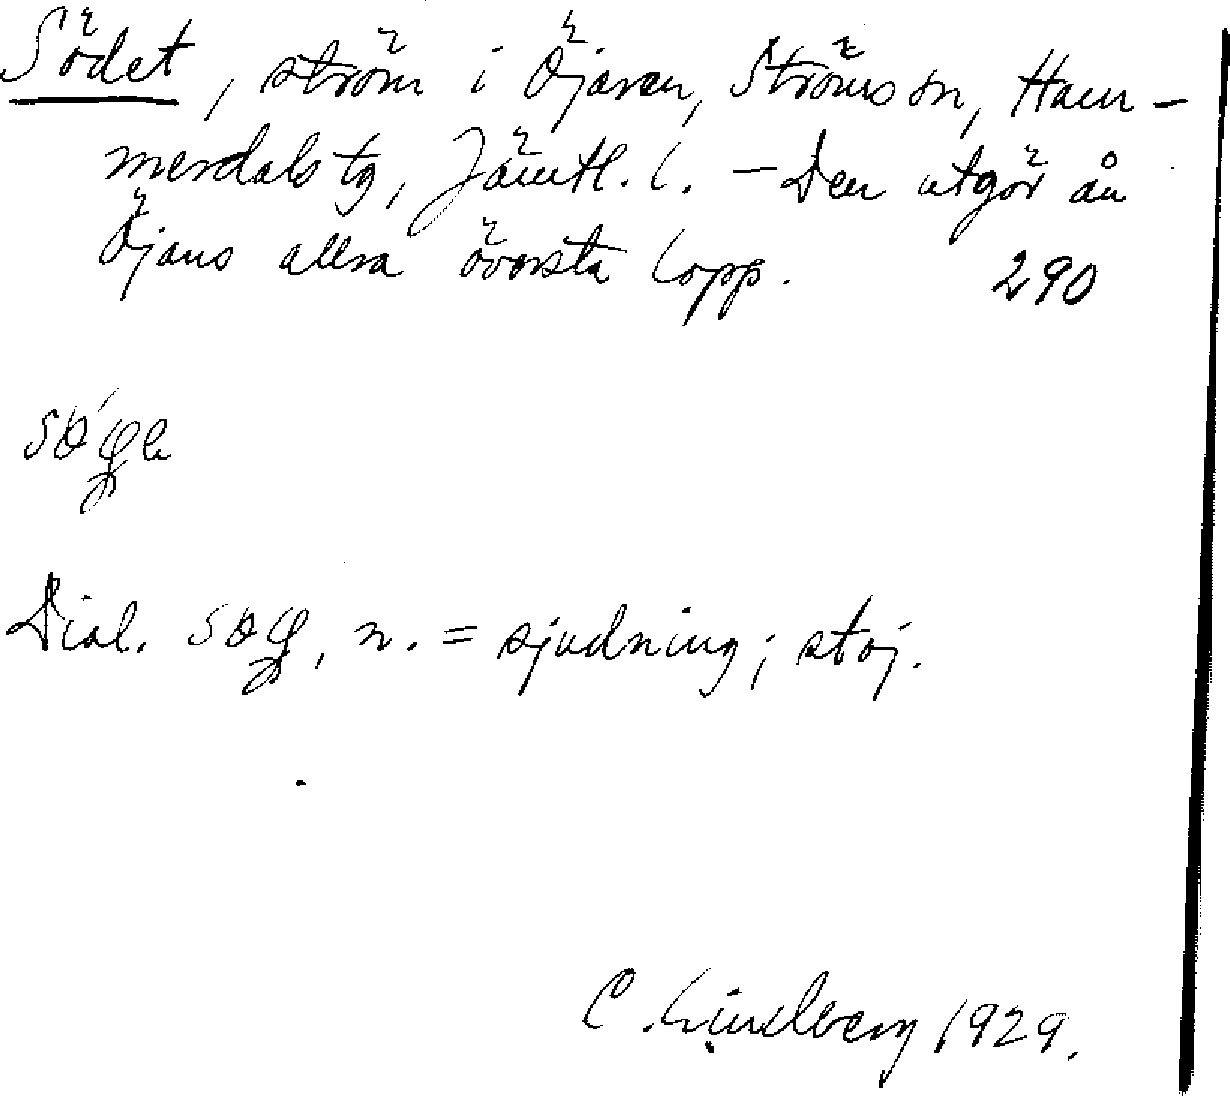 Södet, ström i Öjaren, Ströms sn, Ham-
merdals tg, Jämtl. l. – Den utgör ån
Öjans allra översta lopp. 290
Dial. , n. = sjudning; stoj.
C. Lindberg 1929.